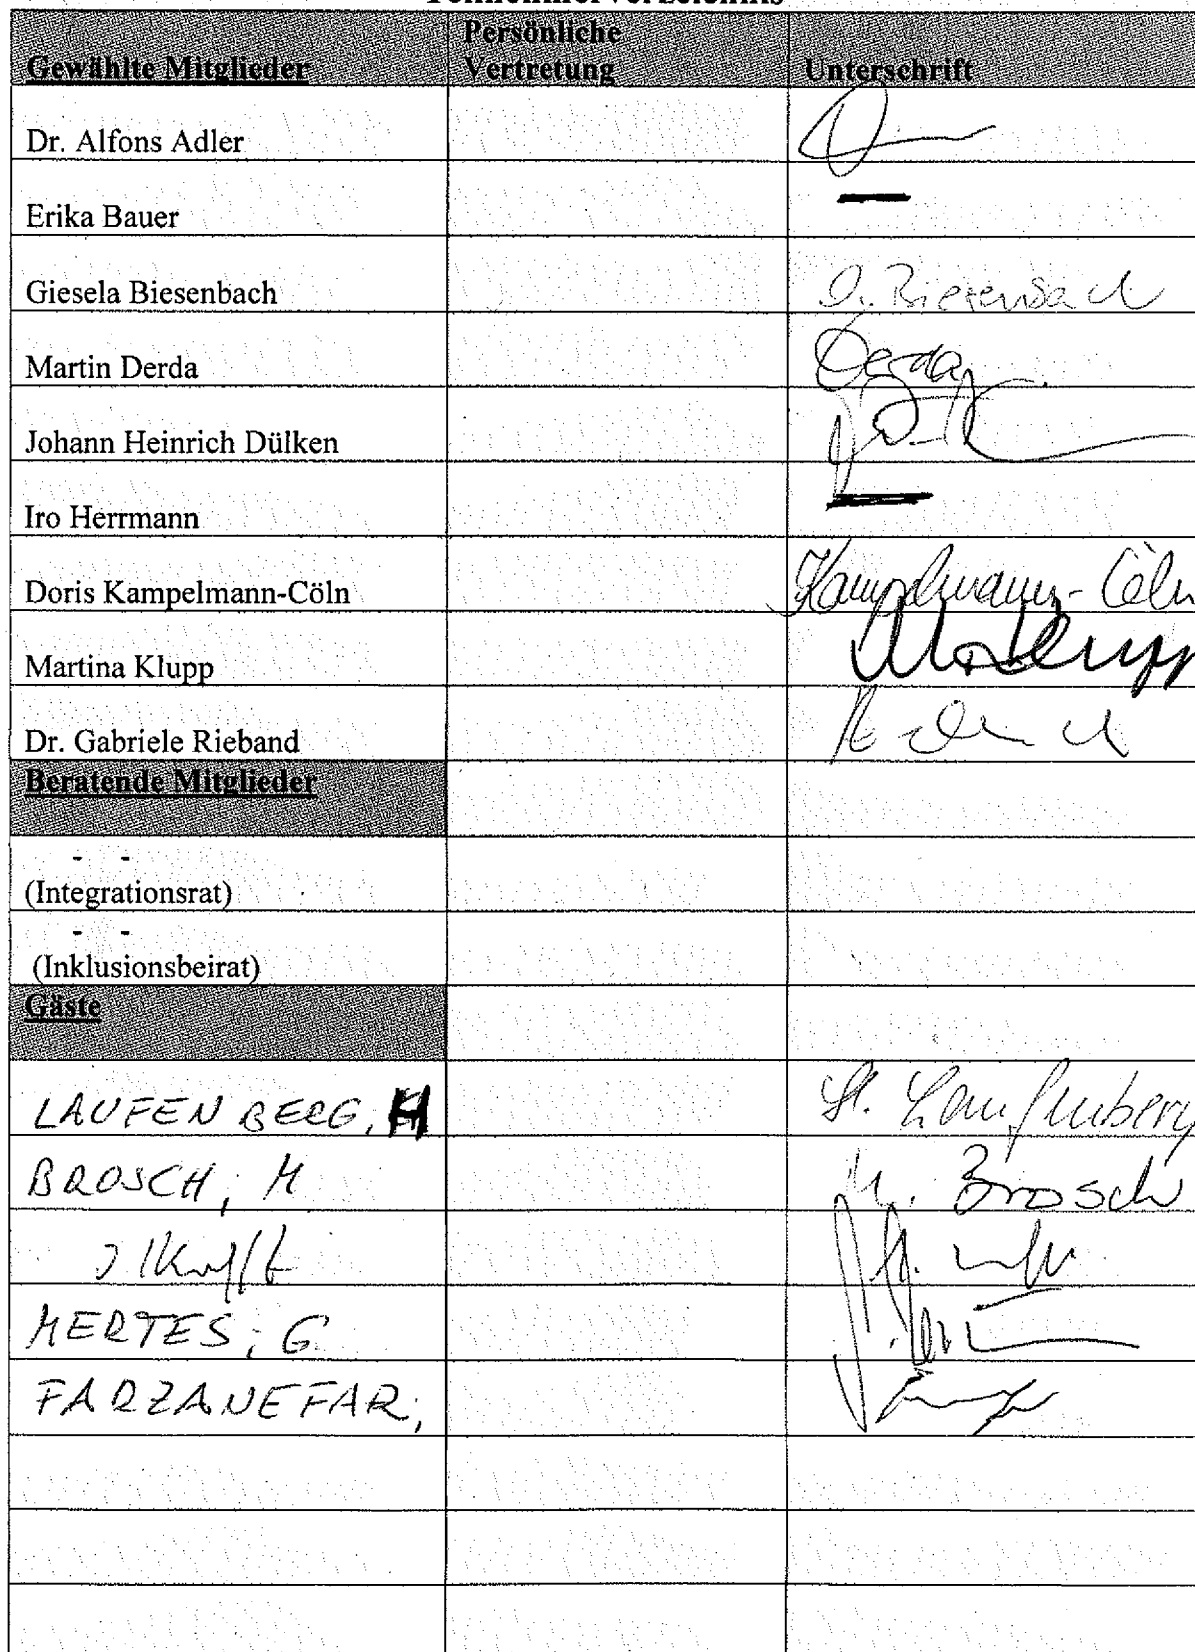 Teilnehmerverzeichnis
Gewählte Mitglieder Persönliche Vertretung Unterschrift
Dr. Alfons Adler
Erika Bauer
Giesela Biesenbach G. Biesenbach
Martin Derda Derda
Johann Heinrich Dülken
Iro Herrmann
Doris Kampelmann-Cöln Kampelmann-Cöln
Martina Klupp M. Klupp
Dr. Gabriele Rieband
Beratende Mitglieder
- -
(Integrationsrat)
- -
(Inklusionsbeirat)
Gäste
LAUFENBERG, H H. Laufenberg
BROSCH, M M. Brosch
MERTES, G
FARZANEFAR,